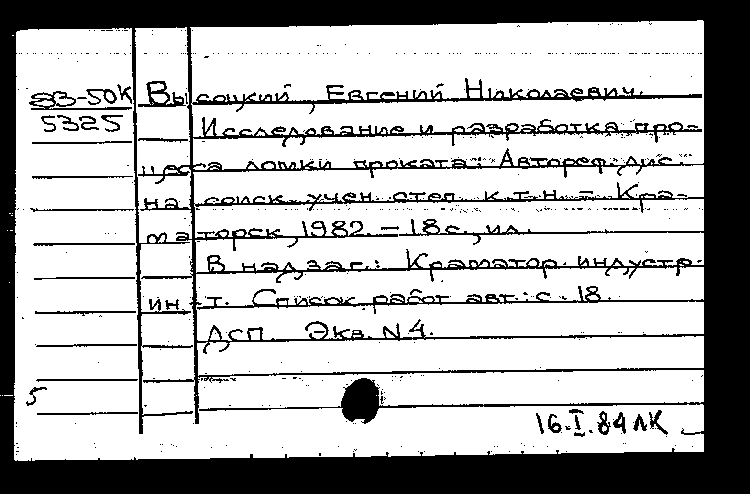 83-50К Высоцкий, Евгений Николаевич.
5325 Исследование и разработка про-
цесса ломки проката: Автореф. дис.
на соиск. учен. степ. к.т.н. – Кра-
маторск, 1982. – 18 с., ил.
В надзаг.: Краматор. индустр.
ин-т. Список работ авт.: с. 18.
ДСП. Экз. N 4.
5
16.I.84 ЛК